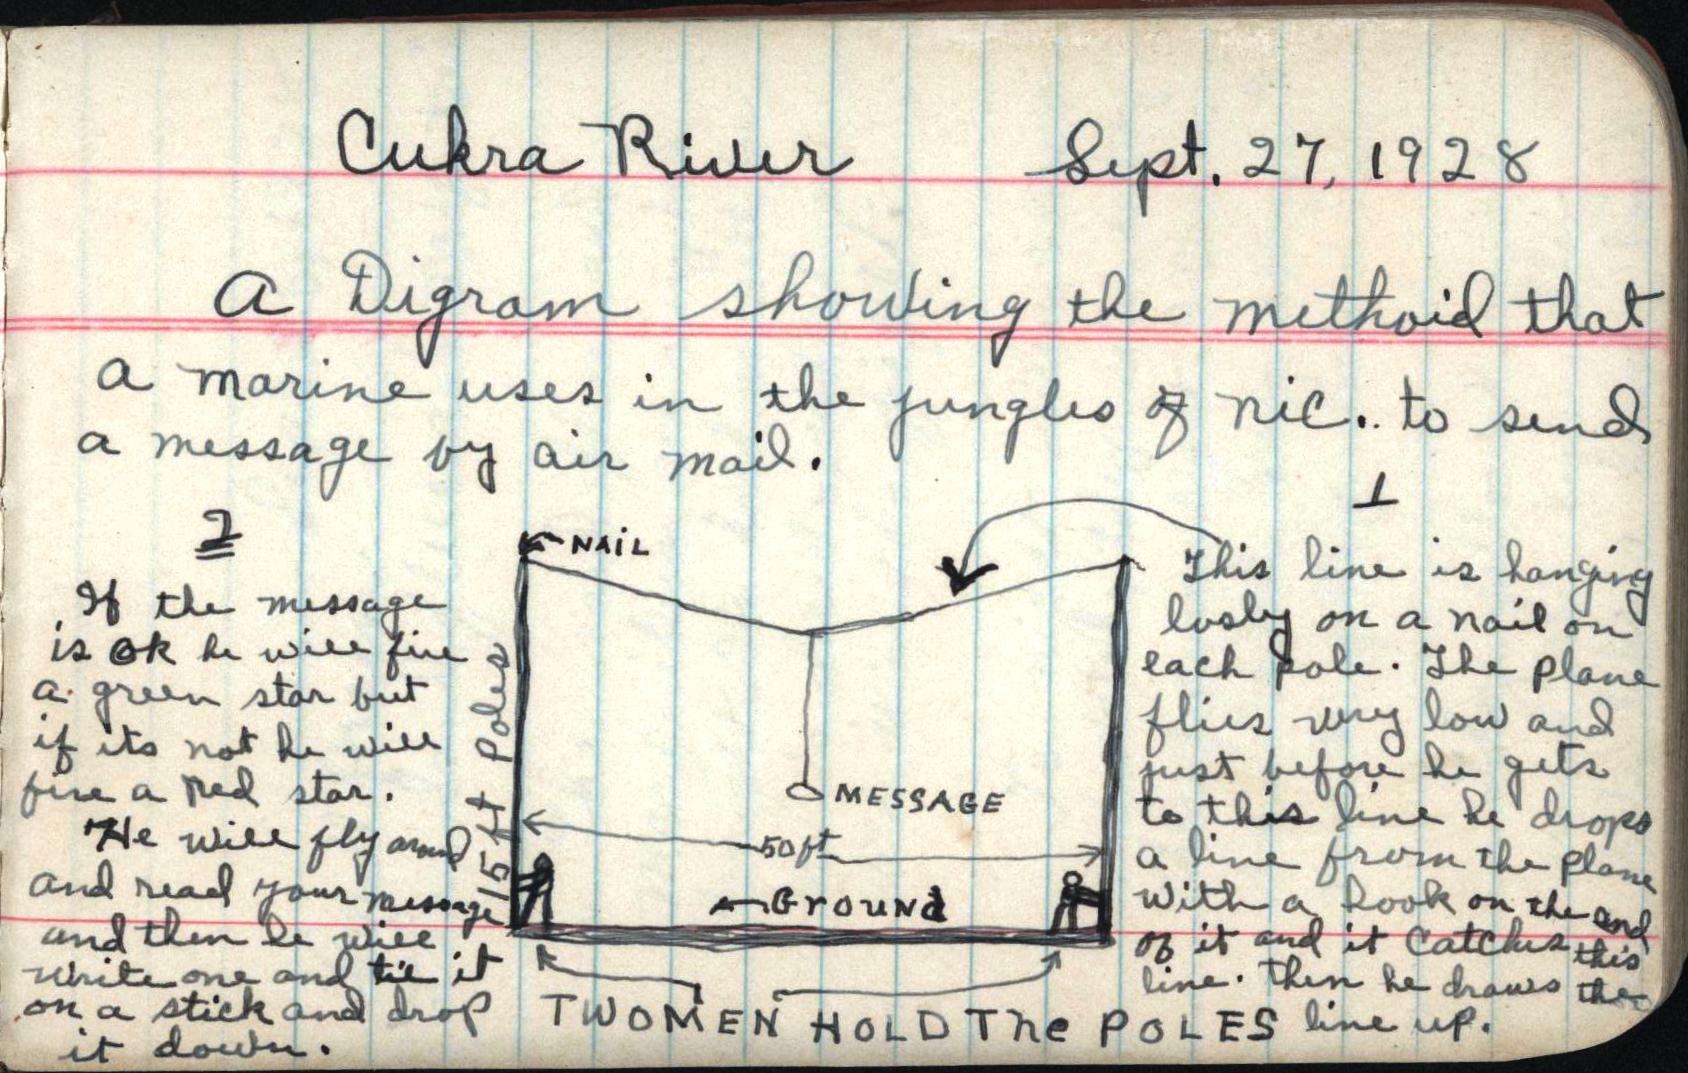 Cukra River Sept. 27, 1928
A Digram showing the methoid that
a marine uses in the jungles of Nic. to send
a message by air mail.
1
This line is hanging
losly on a nail on
each pole. The plane
flies very low and
just before he gets
to this line he drops
a line from the plane
with a hook on the end
of it and it catches this
line. Then he draws the
line up.
2
If the message
is ok he will fire
a green star but
if its not he will
fire a red star.
He will fly around
and read your message
and then he will
write one and tie it
on a stick and drop
it down.
NAIL
15 ft Poles
MESSAGE
50 ft
GROUND
TWO MEN HOLD The POLES